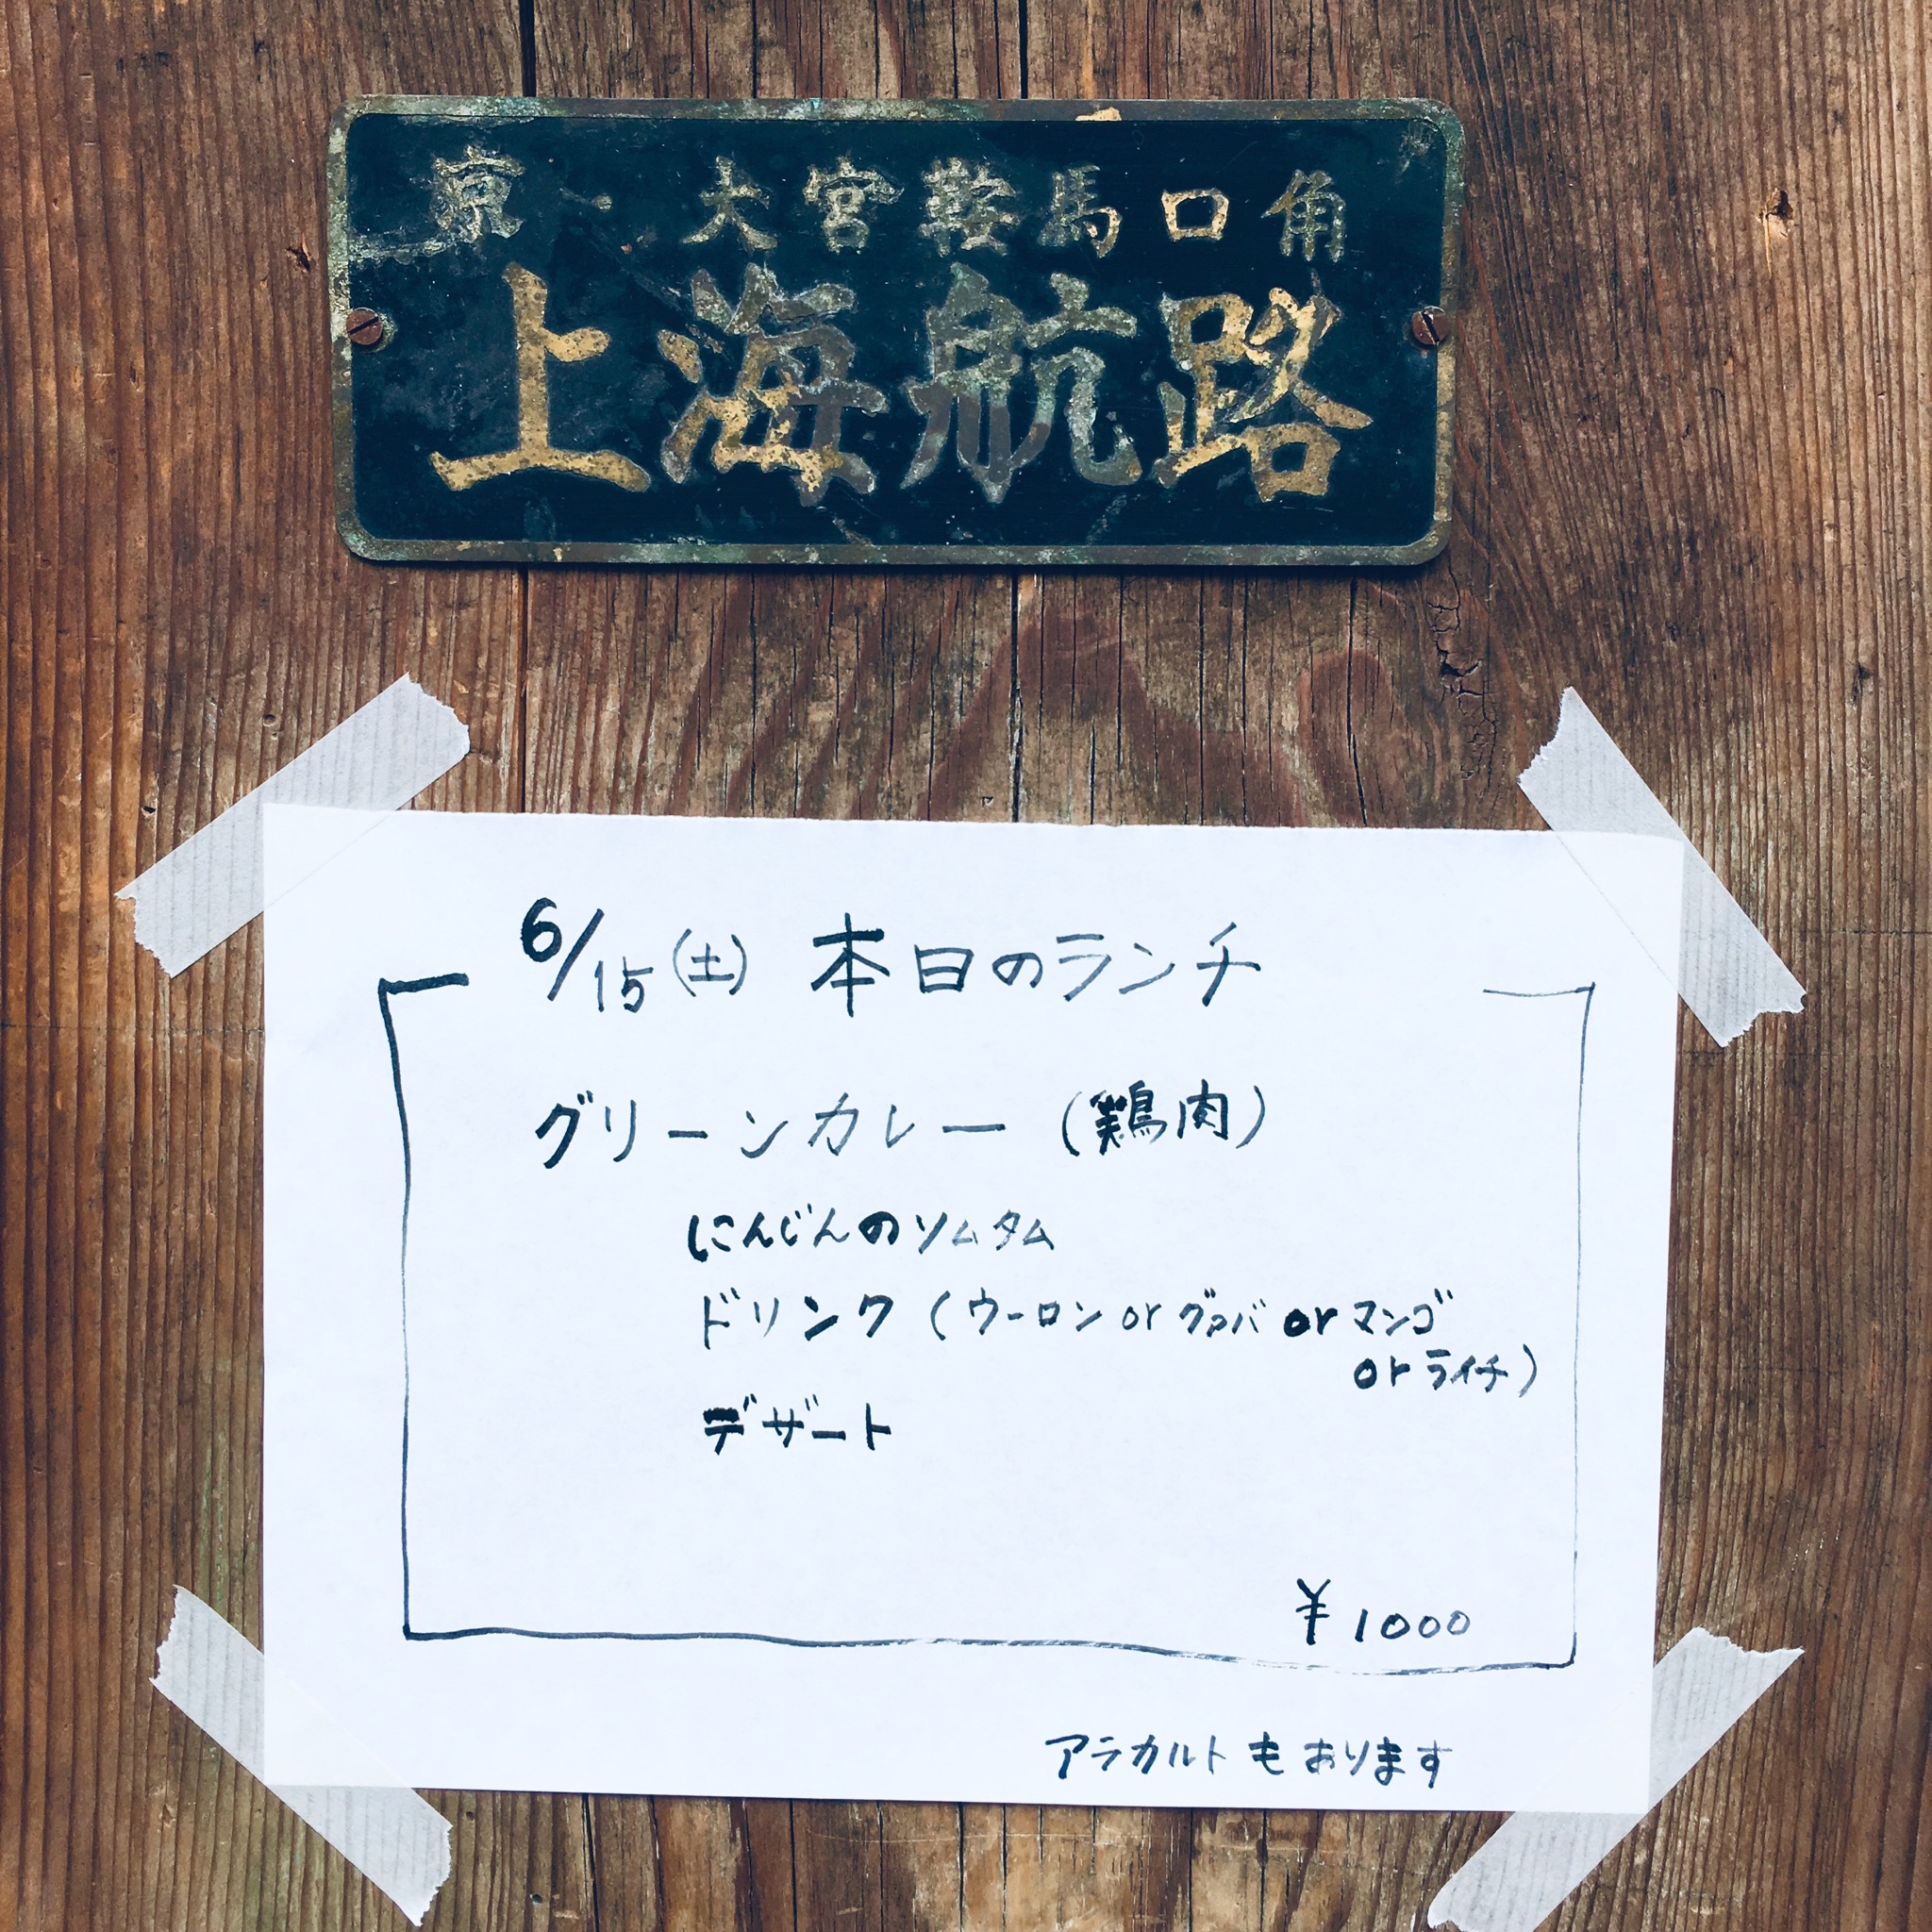 京・大宮鞍馬口角
上海航路
6/15(土) 本日のランチ
グリーンカレー (鶏肉)
にんじんのソムタム
ドリンク (ウーロン or グァバ or マンゴ
or ライチ)
デザート
¥1000
アラカルトもあります